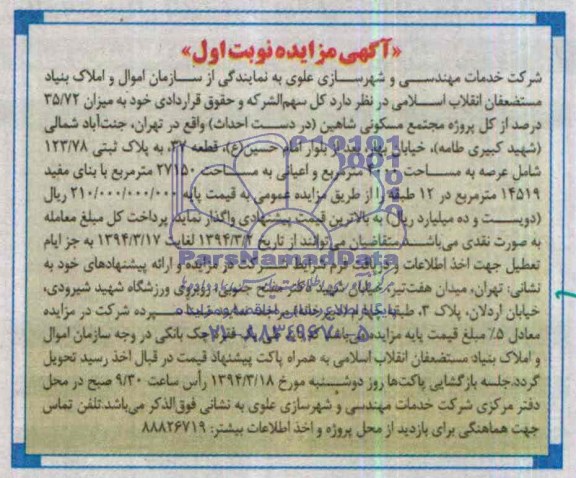 «آگهی مزایده نوبت اول»
شرکت خدمات مهندسی و شهرسازی علوی به نمایندگی از سازمان اموال و املاک بنیاد
مستضعفان انقلاب اسلامی در نظر دارد کل سهم‌الشرکه و حقوق قراردادی خود به میزان ۳۵/۷۲
درصد از کل پروژه مجتمع مسکونی شاهین (در دست احداث) واقع در تهران، جنت‌آباد شمالی
(شهید کبیری طامه)، خیابان بهار، بعد از بلوار امام حسین(ع)، قطعه ۳۷، به پلاک ثبتی ۱۲۳/۷۸
شامل عرصه به مساحت مترمربع و اعیانی به مساحت ۲۷۱۵۰ مترمربع با بنای مفید
۱۴۵۱۹ مترمربع در ۱۲ طبقه را از طریق مزایده عمومی به قیمت پایه ۲۱۰/۰۰۰/۰۰۰/۰۰۰ ریال
(دویست و ده میلیارد ریال) به بالاترین قیمت پیشنهادی واگذار نماید. پرداخت کل مبلغ معامله
به صورت نقدی می‌باشد. متقاضیان می‌توانند از تاریخ ۱۳۹۴/۳/۲ لغایت ۱۳۹۴/۳/۱۷ به جز ایام
تعطیل جهت اخذ اطلاعات و دریافت فرم شرایط شرکت در مزایده و ارائه پیشنهادهای خود به
نشانی: تهران، میدان هفت‌تیر، خیابان شهید دکتر مفتح جنوبی، روبروی ورزشگاه شهید شیرودی،
خیابان اردلان، پلاک ۳، طبقه مراجعه نمایند. سپرده شرکت در مزایده
معادل ۵٪ مبلغ قیمت پایه مزایده می‌باشد که چک بانکی در وجه سازمان اموال
و املاک بنیاد مستضعفان انقلاب اسلامی به همراه پاکت پیشنهاد قیمت در قبال اخذ رسید تحویل
گردد. جلسه بازگشایی پاکت‌ها روز دوشنبه مورخ ۱۳۹۴/۳/۱۸ رأس ساعت ۹/۳۰ صبح در محل
دفتر مرکزی شرکت خدمات مهندسی و شهرسازی علوی به نشانی فوق‌الذکر می‌باشد. تلفن تماس
جهت هماهنگی برای بازدید از محل پروژه و اخذ اطلاعات بیشتر: ۸۸۸۲۶۷۱۹
ParsNamadData
۰۲۱-۸۸۳۴۹۶۷۰-۵